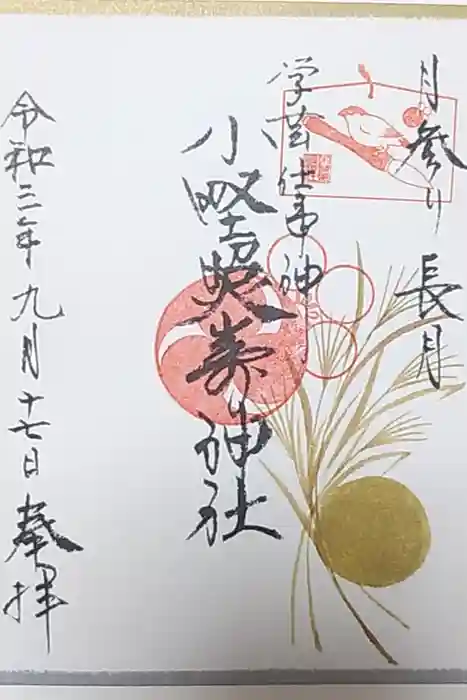 月参り 長月
学芸仕事神
小野照崎神社
令和三年九月十七日 奉拝